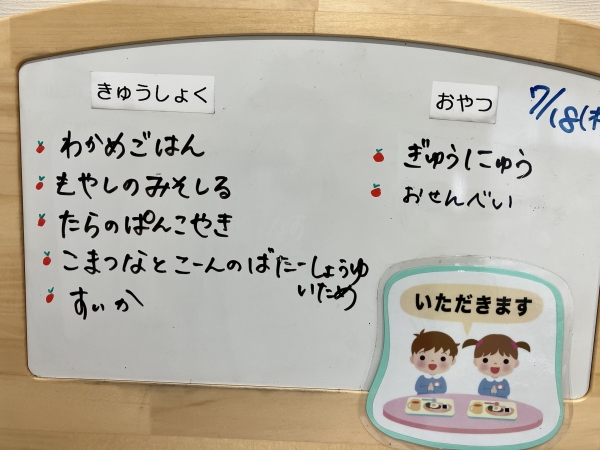 きゅうしょく
わかめごはん
もやしのみそしる
たらのぱんこやき
こまつなとこーんのばたーしょうゆ
いため
すいか
おやつ
7/18(木
ぎゅうにゅう
おせんべい
いただきます